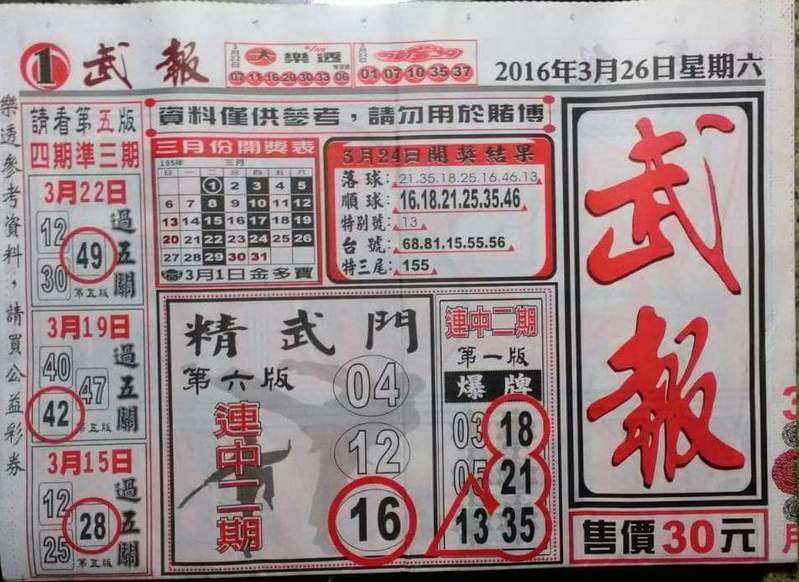 1 武報
大樂透
07 11 16 20 30 33 06
01 07 10 35 37
2016年3月26日星期六
樂透參考資料，請買公益彩券
請看第五版
四期準三期
3月22日
12
49
30
過五關
第五版
3月19日
40
47
42
過五關
第五版
3月15日
12
28
25
過五關
第五版
資料僅供參考，請勿用於賭博
三月份開獎表
105年 三月
日 一 二 三 四 五 六
1 2 3 4 5
6 7 8 9 10 11 12
13 14 15 16 17 18 19
20 21 22 23 24 25 26
27 28 29 30 31
3月1日金多寶
3月24日開獎結果
落球: 21.35.18.25.16.46.13
順球: 16.18.21.25.35.46
特別號: 13
台號: 68.81.15.55.56
特三尾: 155
精武門
第六版
連中二期
04
12
16
連中二期
第一版
爆牌
03 18
05 21
13 35
武報
售價30元